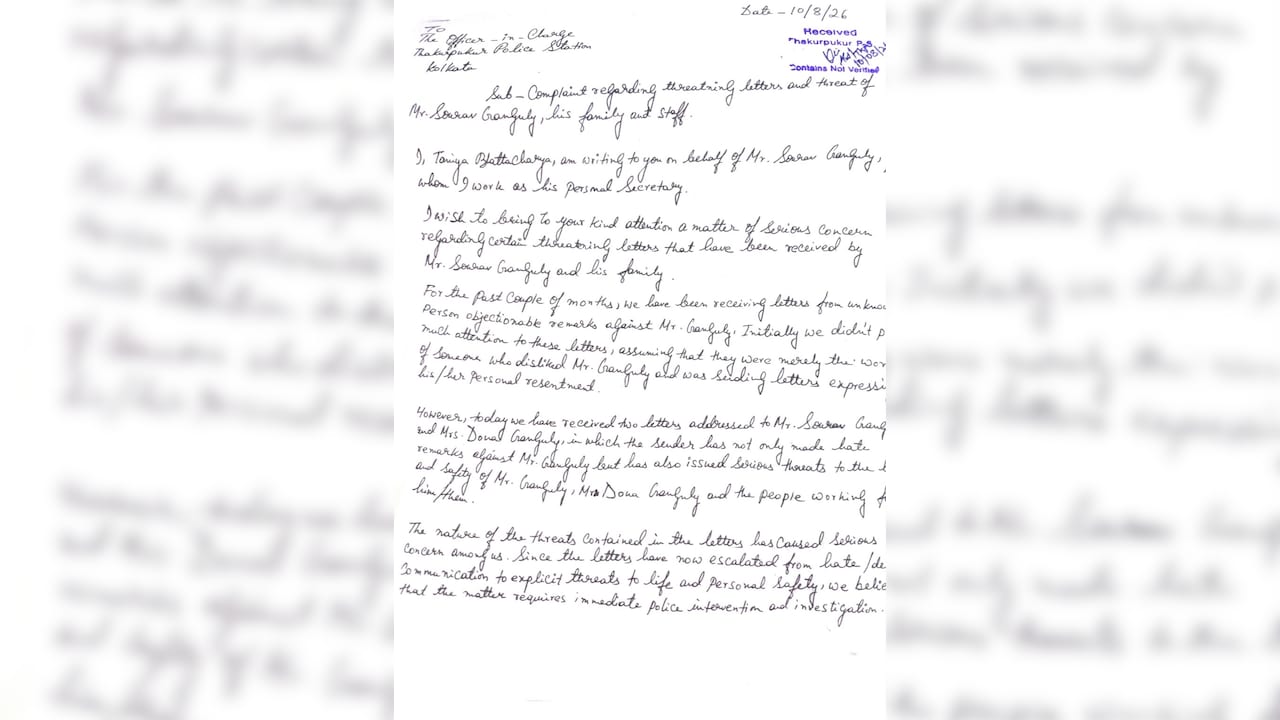 Date - 10/8/26
To
The Officer-in-Charge
Thakurpukur Police Station
Kolkata
Received
Thakurpukur P.S
10/08/2
Contains Not Verified
Sub - Complaint regarding threatning letters and threat of
Mr. Sourav Ganguly, his family and staff.
I, Taniya Bhattacharya, am writing to you on behalf of Mr. Sourav Ganguly,
whom I work as his Personal Secretary.
I wish to bring to your kind attention a matter of serious concern
regarding certain threatning letters that have been received by
Mr. Sourav Ganguly and his family.
For the past couple of months, we have been receiving letters from unkno
person objectionable remarks against Mr. Ganguly. Initially we didn't p
much attention to these letters, assuming that they were merely the wor
of someone who disliked Mr. Ganguly and was sending letters expressi
his/her personal resentment.
However, today we have received two letters addressed to Mr. Sourav Gang
and Mrs. Dona Ganguly, in which the sender has not only made hate
remarks against Mr. Ganguly but has also issued serious threats to the l
and safety of Mr. Ganguly, Mrs Dona Ganguly and the people working f
him/them.
The nature of the threats contained in the letters has caused serious
concern among us. Since the letters have now escalated from hate/de
communication to explicit threats to life and personal safety, we belie
that the matter requires immediate police intervention and investigation.